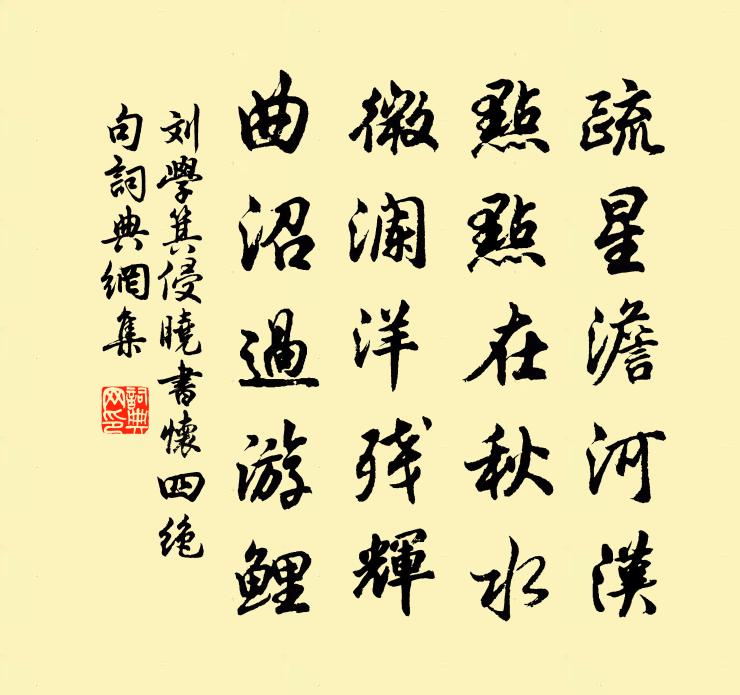 疏星澹河漢
點點在秋水
微瀾洋残輝
曲沼過游鲤
刘學箕侵曉書懷四绝
句詞典網集
詞典网印